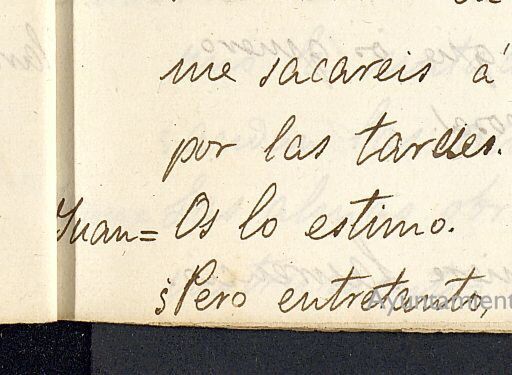 me sacareis á
por las tardes.
Juan= Os lo estimo.
¿Pero entretanto,
Ayuntamient